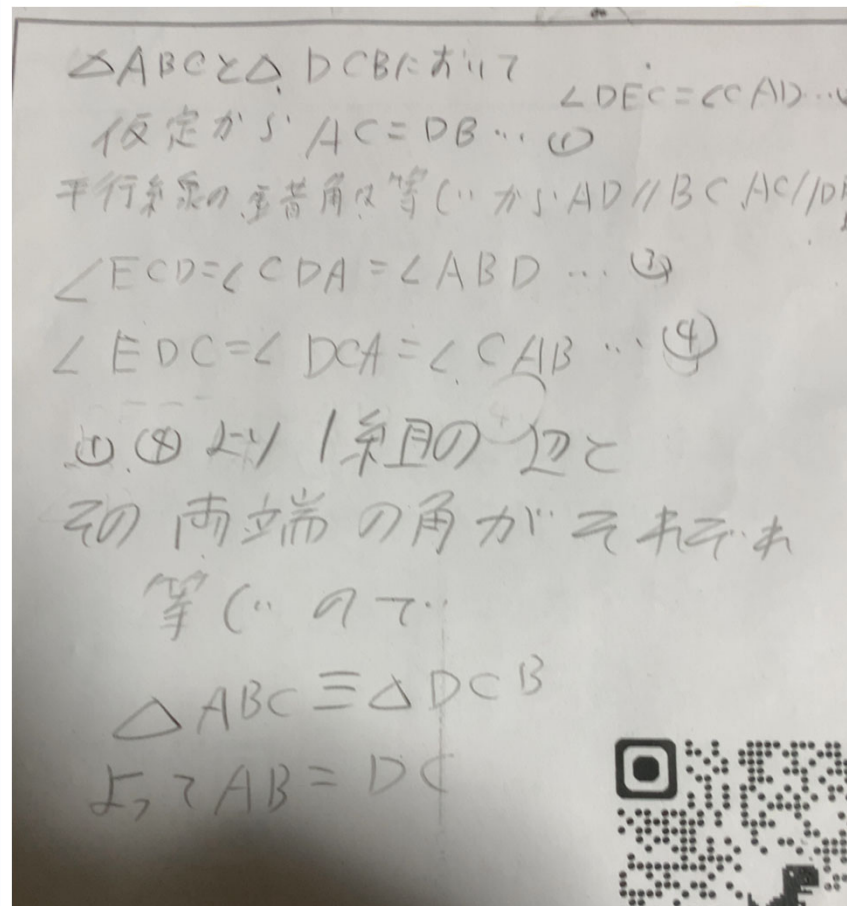 △ABCと△DCBにおいて
∠DEC=∠CAD…
仮定から AC=DB…①
平行線の 角は等しいから AD//BC、AC//D
∠ECD=∠CDA=∠ABD …③
∠EDC=∠DCA=∠CAB …④
①、④より 1組の辺と
その両端の角がそれぞれ
等しいので
△ABC≡△DCB
よってAB=DC